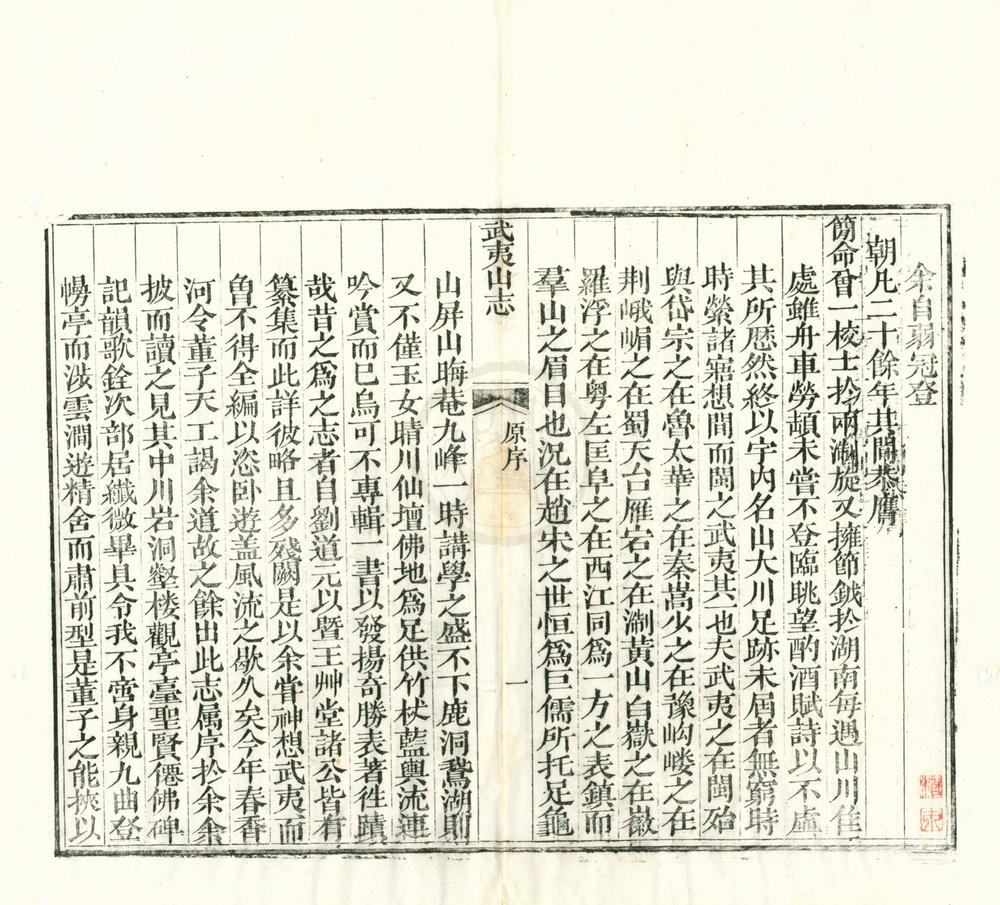 余自弱冠登
朝凡二十餘年其間恭膺
簡命曾一校士扵兩浙旋又擁節鉞扵湖南每遇山川佳
處雖舟車勞頓未嘗不登臨眺望酌酒賦詩以不虛
其所歷然終以宇内名山大川足跡未屆者無窮時
時縈諸寤想間而閩之武夷其一也夫武夷之在閩殆
與岱宗之在魯太華之在秦嵩少之在豫岣嶁之在
荆峨嵋之在蜀天台雁宕之在淛黃山白嶽之在徽
羅浮之在粵左匡阜之在西江同為一方之表鎮而
羣山之眉目也況在趙宋之世恒為巨儒所托足龜
武夷山志
原序
一
山屏山晦菴九峰一時講學之盛不下鹿洞鵞湖則
又不僅玉女晴川仙壇佛地為足供竹杖藍輿流連
吟賞而已烏可不專輯一書以發揚奇勝表著徃蹟
哉昔之為之志者自劉道元以暨王艸堂諸公皆有
纂集而此詳彼略且多殘闕是以余甞神想武夷而
曾不得全編以恣卧遊盖風流之歇久矣今年春香
河令董子天工謁余道故之餘出此志属序扵余余
披而讀之見其中川岩洞壑楼觀亭臺聖賢僊佛碑
記韻歌銓次部居纖微畢具令我不啻身親九曲登
幔亭而涉雲澗遊精舍而肅前型是董子之能挾以